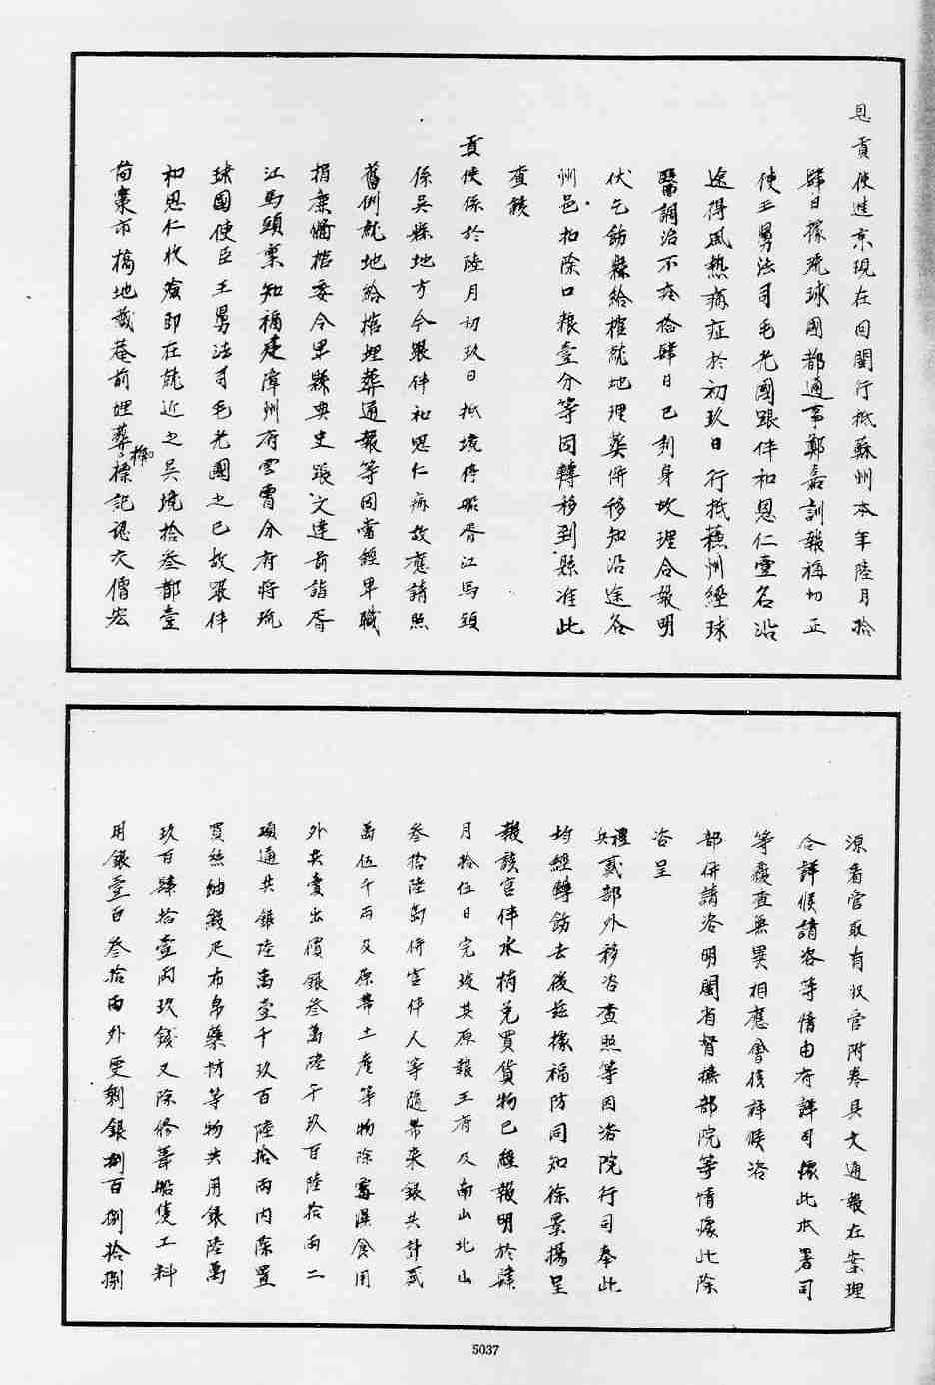 貢使進京現在回閩行抵蘇州本年陸月拾
肆日據琉球國都通事鄭嘉訓報稱切正
使王舅法司毛光國跟伴和恩仁壹名沿
途得風熱病症於初玖日行抵蘇州經球
醫調治不疼拾肆日巳刻身故理合報明
伏乞飭縣給棺就地埋葬併移知沿途各
州邑扣除口粮壹分等因轉移到縣准此
查該
貢使係於陸月初玖日抵境停船胥江馬頭
係吳縣地方今跟伴和恩仁病故應請照
舊例就地給棺埋葬通報等因當經卑職
捐廉備棺委令卑縣典史張文達前詣胥
江馬頭稟知福建漳州府雲霄分府將琉
球國使臣王舅法司毛光國之已故跟伴
和恩仁收殮即在就近之吳境拾叁都壹
啚棗市橋地藏菴前埋葬標記認交僧宏
源看管取有收管附卷具文通報在案理
合詳候請咨等情由府詳司據此本署司
等覆查無異相應會後詳候咨
部併請咨明閩省督撫部院等情據此除
咨呈
禮兵貳部外移咨查照等因咨院行司奉此
均經轉飭去後茲據福防同知徐景揚呈
報該官伴水梢兌買貨物已經報明於肆
月拾伍日完竣其原報王府及南山北山
叁拾陸島併官伴人等隨帶來銀共計貳
萬伍千兩及原帶土產等物除食用
外共賣出價銀叁萬陸千玖百陸拾兩二
項通共銀陸萬壹千玖百陸拾兩內除置
買絲紬緞疋布帛藥材等物共用銀陸萬
玖百肆拾壹兩玖錢又除修葺船隻工料
用銀壹百叁拾兩外更剩銀捌百捌拾捌
5037